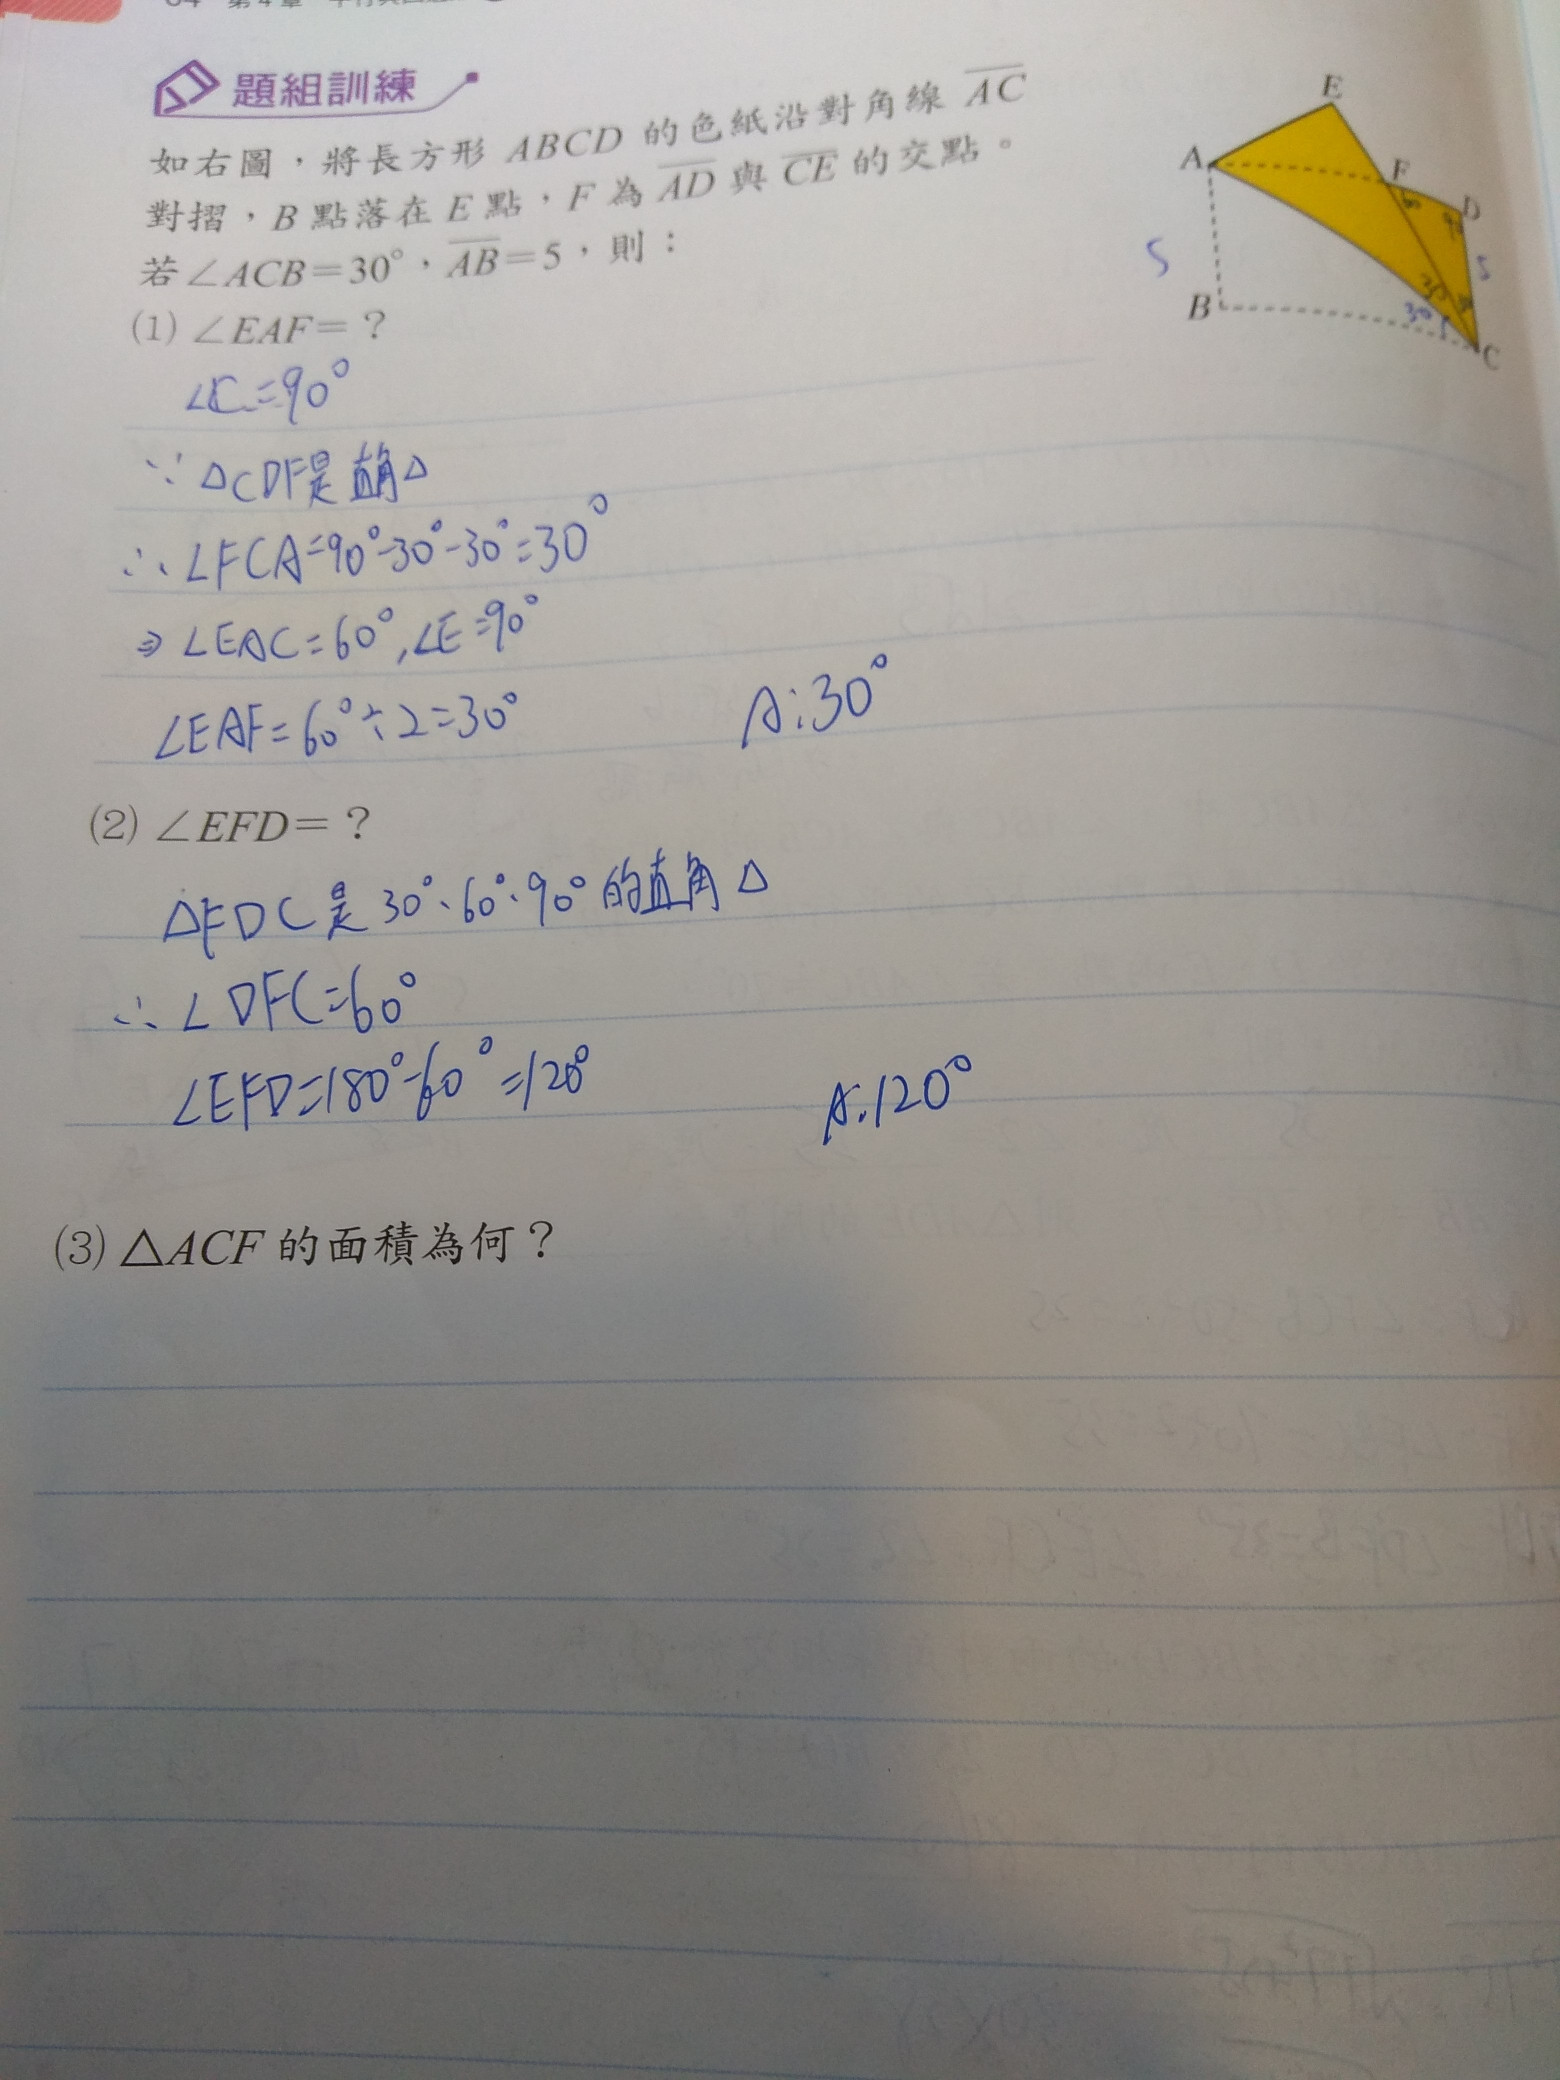 題組訓練
如右圖，將長方形 ABCD 的色紙沿對角線 AC
對摺，B 點落在 E 點，F 為 AD 與 CE 的交點。
若∠ACB=30°，AB=5，則：
E
A
F
D
B
C
5
5
30
30
(1) ∠EAF=？
∠C=90°
∵ △CDF是直角△
∴ ∠FCA=90°-30°-30°=30°
⇒ ∠EAC=60°,∠E=90°
∠EAF=60°÷2=30°
A:30°
(2) ∠EFD=？
△FDC是 30°、60°、90°的直角△
∴ ∠DFC=60°
∠EFD=180°-60°=120°
A:120°
(3) △ACF 的面積為何？